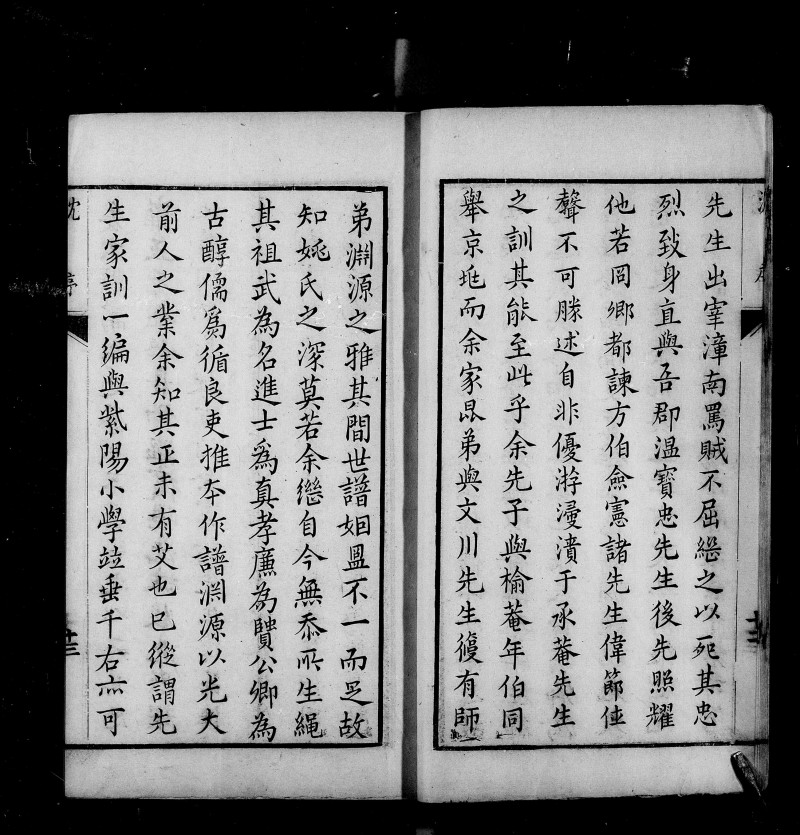 先生出宰漳南罵賊不屈繼之以死其忠
烈致身直與吾郡溫寶忠先生後先照耀
他若岡卿都諫方伯僉憲諸先生偉節佳
聲不可勝述自非優游漫漬于承菴先生
之訓其能至此乎余先子與榆菴年伯同
舉京兆而余家昆弟與文川先生復有師
弟淵源之雅其間世譜姻盟不一而足故
知姚氏之深莫若余繼自今無忝所生繩
其祖武為名進士爲真孝廉為賢公卿為
古醇儒爲循良吏推本作譜淵源以光大
前人之業余知其正未有艾也已縱謂先
生家訓一編與紫陽小學竝垂千右亦可
沈序
十三